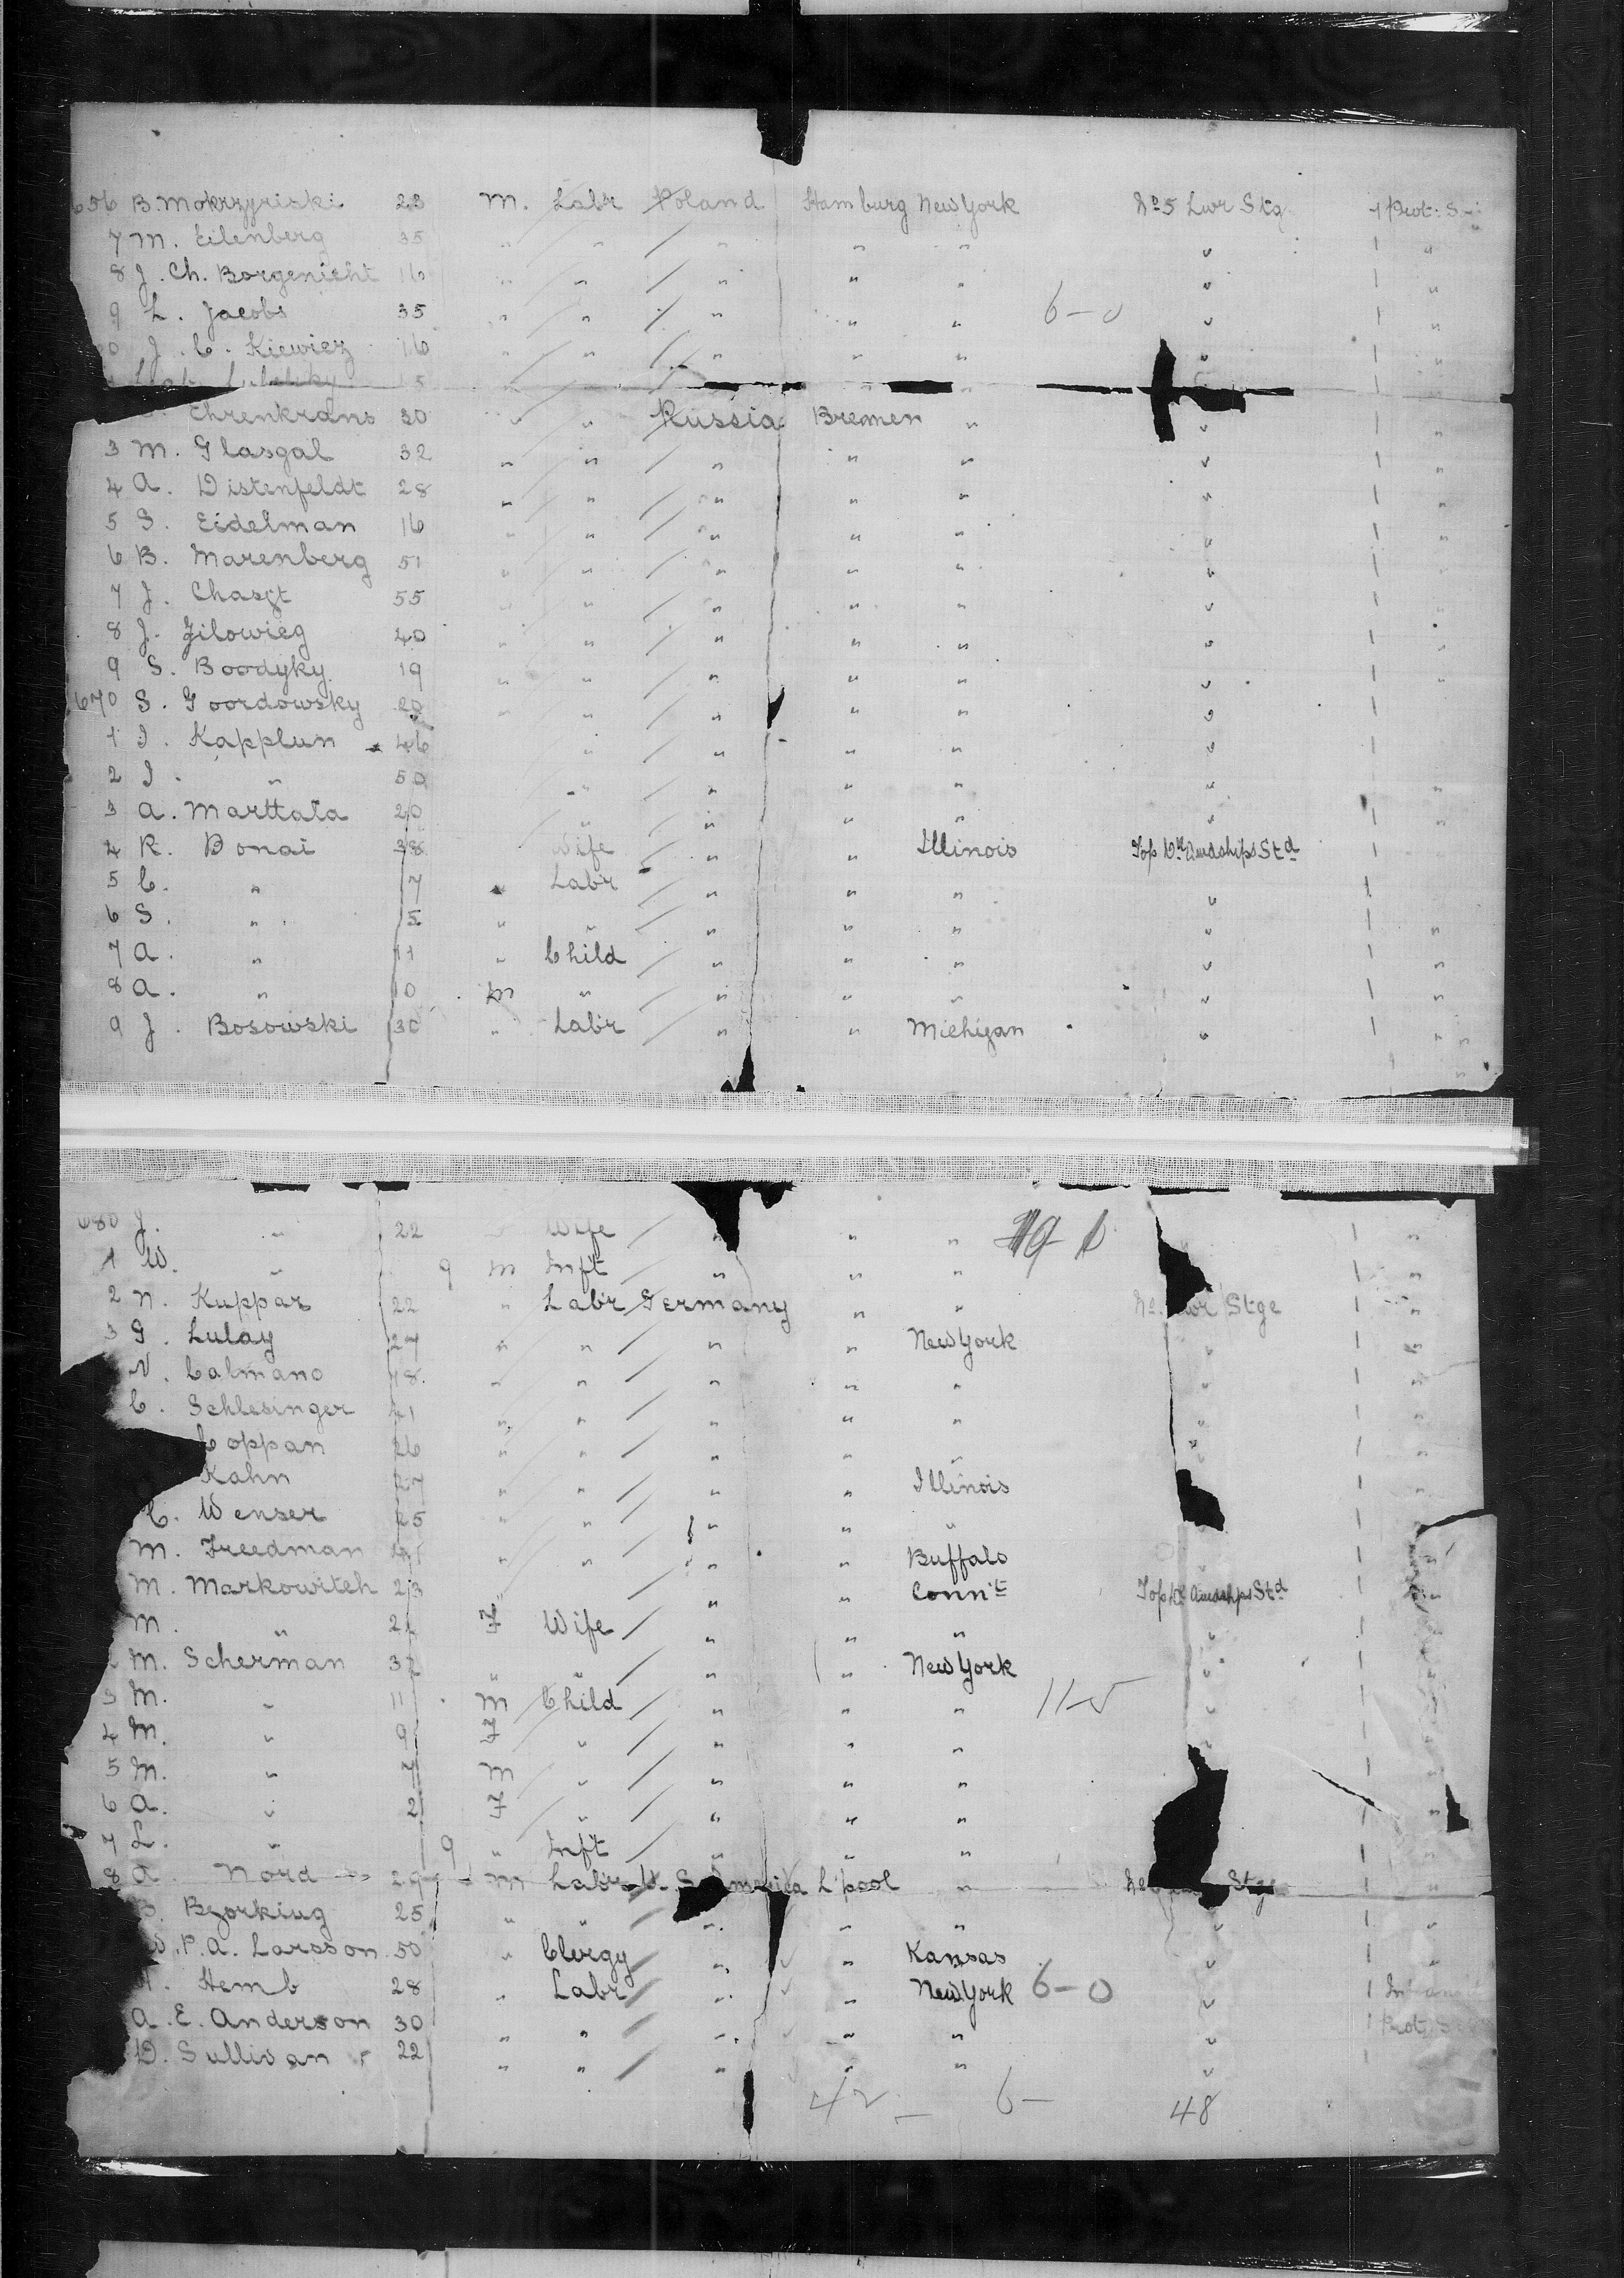 656 B. Mokrzyriski 23 M. Labr Poland Hamburg New York No 5 Lwr Stg 1 Prot: S
7 M. Eilenberg 35 " " " " " " 1 "
8 J. Ch. Borgenicht 16 " " " " " " 1 "
9 L. Jacobs 35 " " " " " 6-0 " 1 "
0 J. C. Kiewicz 16 " " " " " " 1 "
Ehrenkrans 30 " " Russia Bremen " " 1 "
3 M. Glasgal 32 " " " " " " 1 "
4 A. Distenfeldt 28 " " " " " " 1 "
5 S. Eidelman 16 " " " " " " 1 "
6 B. Marenberg 51 " " " " " " 1 "
7 J. Chaszt 55 " " " " " " 1 "
8 J. Zilowieg 40 " " " " " " 1 "
9 S. Boodyky 19 " " " " " " 1 "
670 S. Goordowsky 20 " " " " " " 1
1 I. Kapplun 46 " " " " " 1
2 I. " 50 " " " " " 1 "
3 A. Marttata 20 " " " " " 1 "
4 R. Bonai 38 Wife " " Illinois Top Dk Amdships Std 1
5 C. " 7 " Labr " " " " 1
6 S. " 5 " " " " " " 1 "
7 A. " 11 " Child " " " " 1 "
8 A. " 10 M " " " " " 1 "
9 J. Bosowski 30 " Labr " " Michigan " 1 "
680 J. " 22 Wife " " " 1 "
1 W. " 9 M Inft " " " 1 "
2 N. Kuppar 22 " Labr Germany " " No. Lwr Stge 1 "
3 G. Lulay 27 " " " " New York " 1 "
N. Calmano 18 " " " " " " 1 "
C. Schlesinger 41 " " " " " " 1 "
Coppan 26 " " " " " " 1 "
Kahn 27 " " " " Illinois 1 "
C. Wenser 25 " " " " " 1
M. Freedman " " " " Buffalo " 1
M. Markowitch 23 " " " " Connt Top Dk Amdshps Std 1
M. " 21 F Wife " " " " 1
M. Scherman 32 " " " " New York " 1
3 M. " 11 M Child " " " 11-5 " 1
4 M. " 9 F " " " " " 1
5 M. " 7 M " " " " 1
6 A. " 2 F " " " " 1 "
7 L. " 9 " Inft " " " 1 "
8 A. Nord 29 M Labr U. S. America L'pool " Stge 1 "
B. Bzorking 25 " " " " " " 1 "
P. A. Larsson 50 " Clergy " " Kansas " 1 "
Hemb 28 " Labr " " New York 6-0 " 1
A. E. Anderson 30 " " " " " " 1 Prot:
D. Sullivan 22 " " " " " " 1
42 - 6 - 48